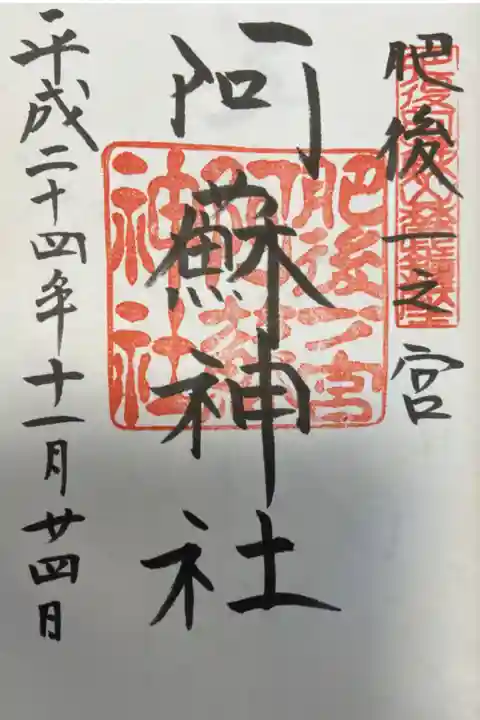 肥後一之宮
阿蘇神社
平成二十四年十一月廿四日
肥後一宮
阿蘇
神社